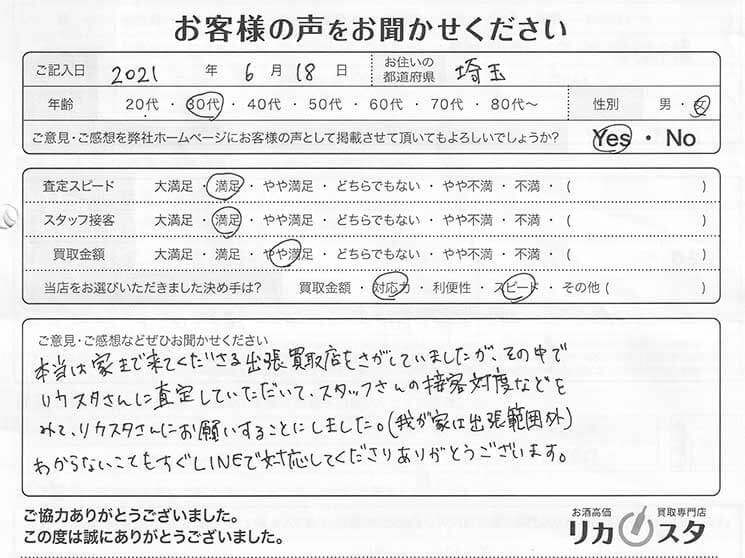 お客様の声をお聞かせください
ご記入日 2021 年 6 月 18 日 お住いの都道府県 埼玉
年齢 20代 ・ 30代 ・ 40代 ・ 50代 ・ 60代 ・ 70代 ・ 80代～ 性別 男 ・ 女
ご意見・ご感想を弊社ホームページにお客様の声として掲載させて頂いてもよろしいでしょうか? Yes ・ No
査定スピード 大満足 ・ 満足 ・ やや満足 ・ どちらでもない ・ やや不満 ・ 不満 ・ ( )
スタッフ接客 大満足 ・ 満足 ・ やや満足 ・ どちらでもない ・ やや不満 ・ 不満 ・ ( )
買取金額 大満足 ・ 満足 ・ やや満足 ・ どちらでもない ・ やや不満 ・ 不満 ・ ( )
当店をお選びいただきました決め手は? 買取金額 ・ 対応力 ・ 利便性 ・ スピード ・ その他 ( )
ご意見・ご感想などぜひお聞かせください
本当は家まで来てくださる出張買取店をさがしていましたが、その中で
リカスタさんに査定していただいて、スタッフさんの接客対度などを
みて、リカスタさんにお願いすることにしました。(我が家は出張範囲外)
わからないこともすぐLINEで対応してくださりありがとうございます。
ご協力ありがとうございました。
この度は誠にありがとうございました。
お酒高価 買取専門店
リカスタ